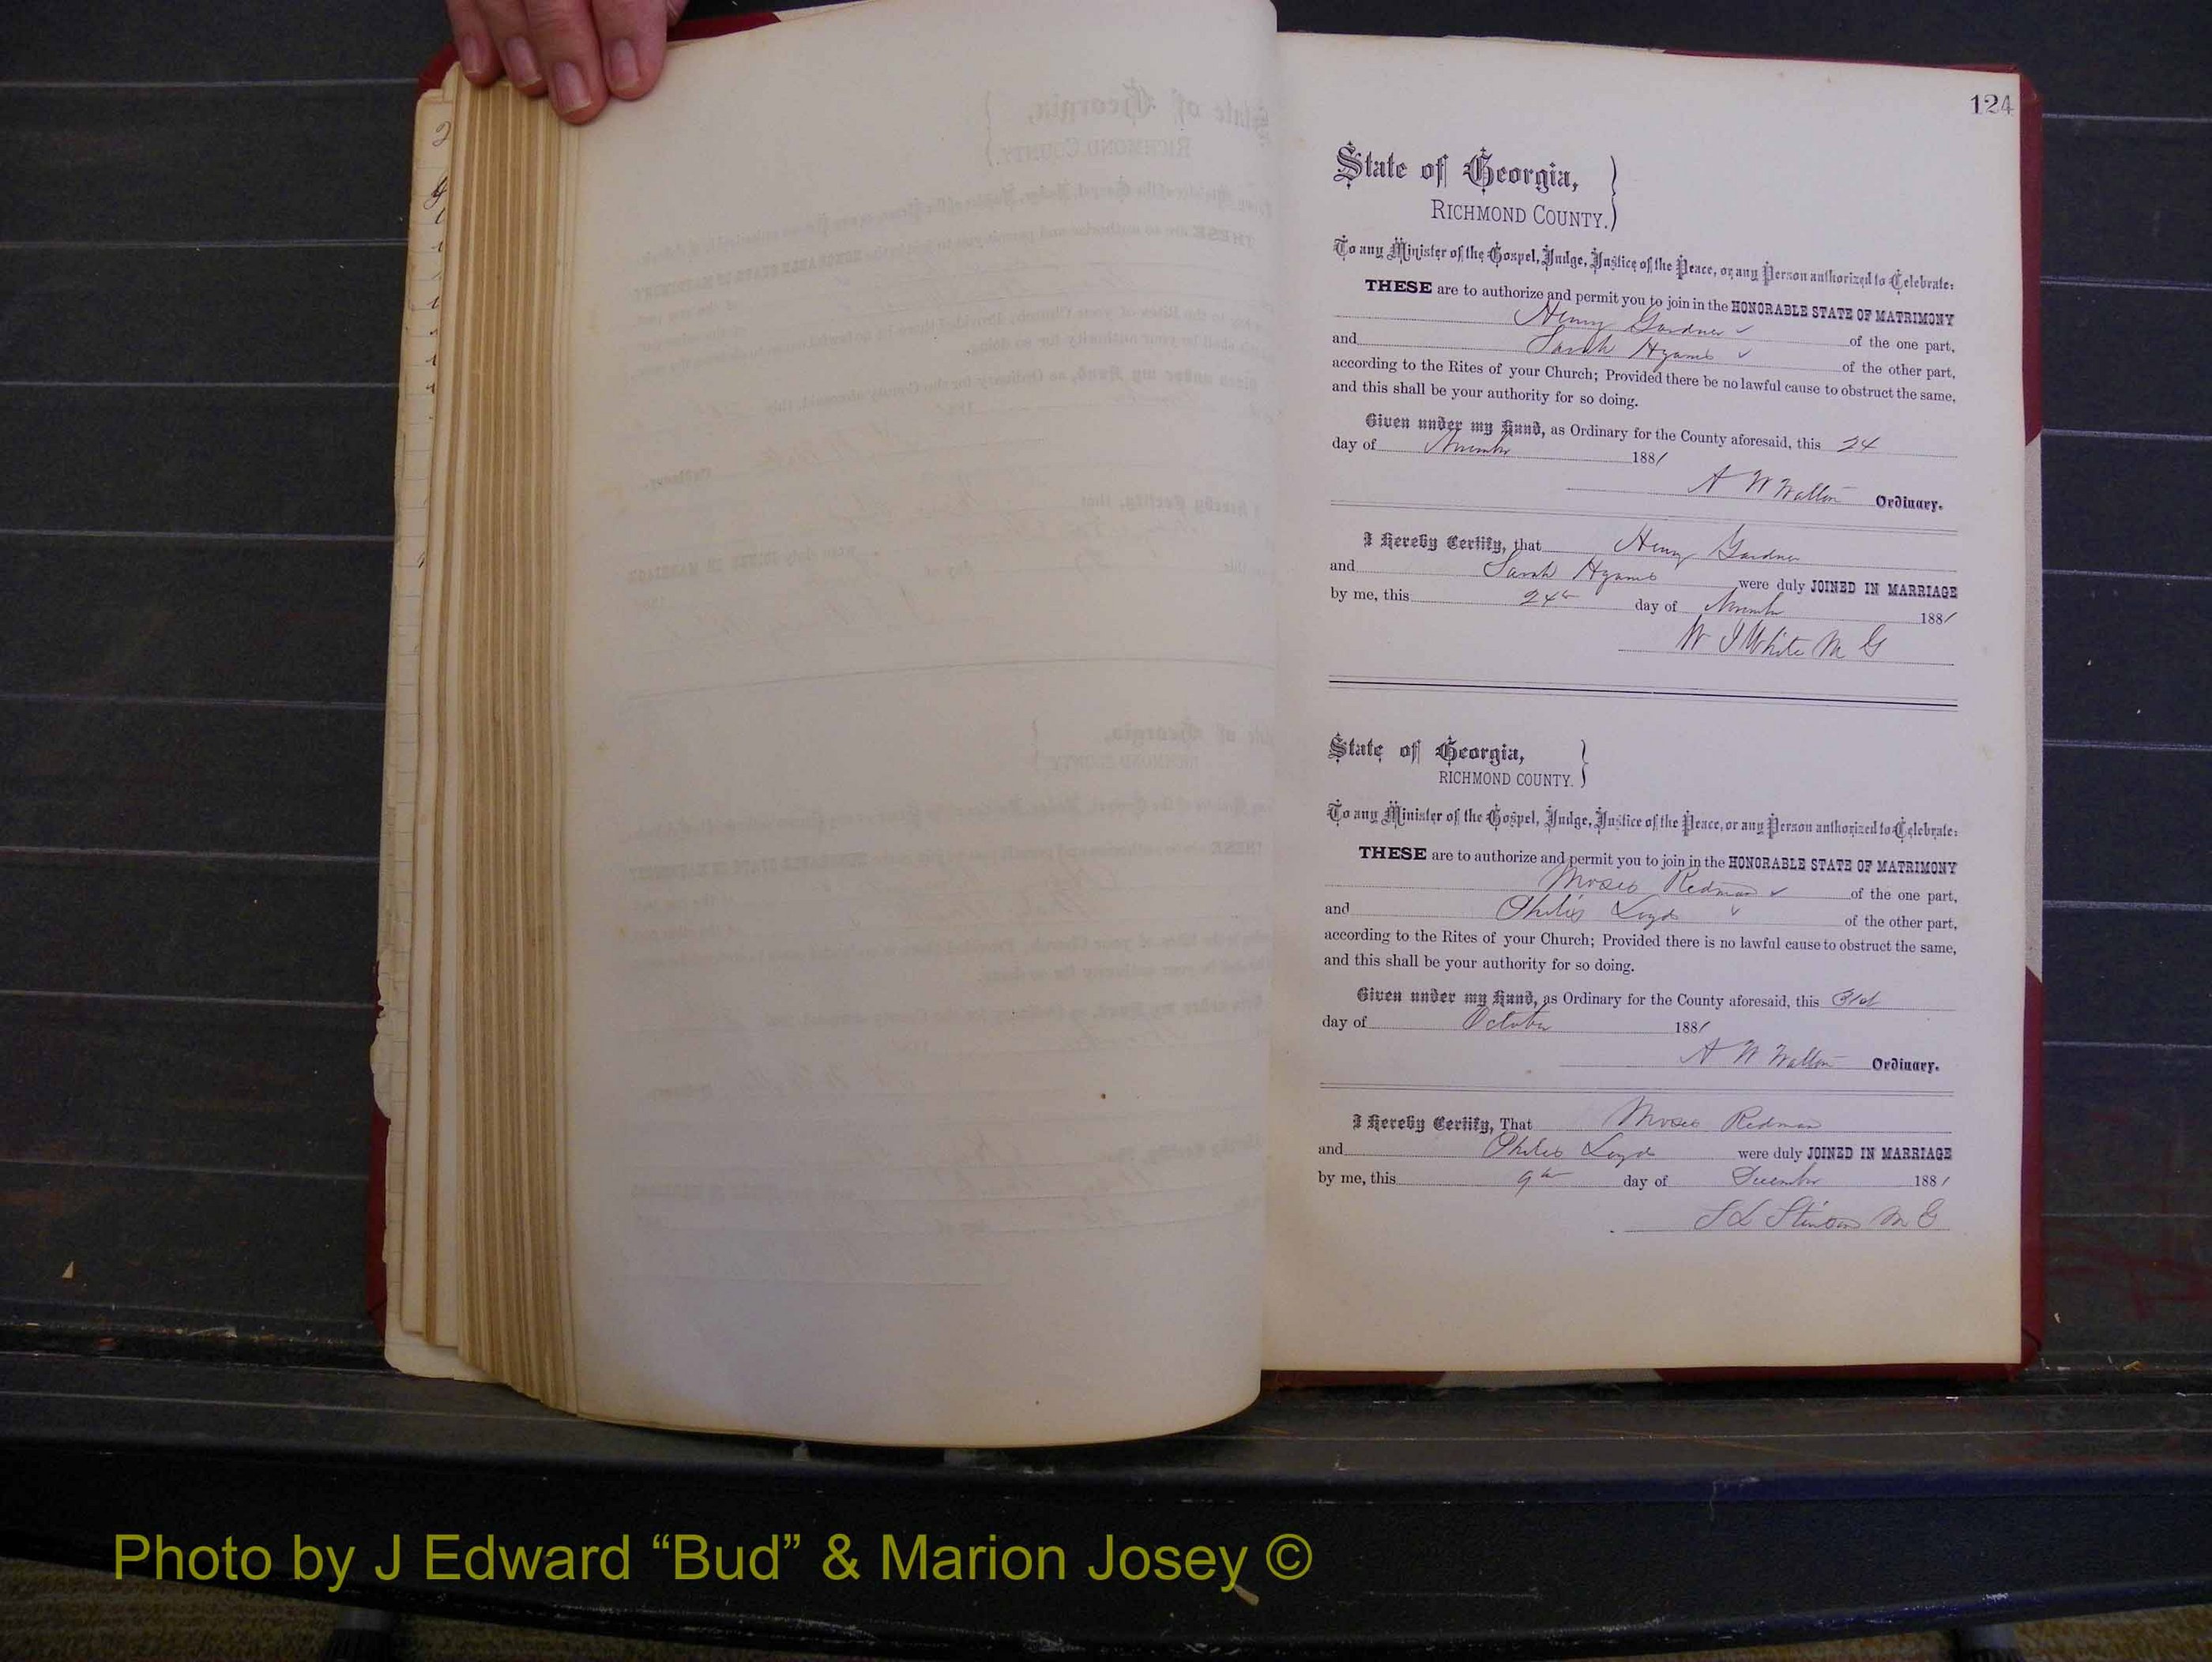 124
State of Georgia,
RICHMOND COUNTY.
To any Minister of the Gospel, Judge, Justice of the Peace, or any Person authorized to Celebrate:
THESE are to authorize and permit you to join in the HONORABLE STATE OF MATRIMONY
Henry Gardner ✓ of the one part,
and Sarah Hyams ✓ of the other part,
according to the Rites of your Church; Provided there be no lawful cause to obstruct the same,
and this shall be your authority for so doing.
Given under my Hand, as Ordinary for the County aforesaid, this 24
day of November 1881
A W Walton Ordinary.
I Hereby Certify, that Henry Gardner
and Sarah Hyams were duly JOINED IN MARRIAGE
by me, this 24th day of November 1881
W J White M G
State of Georgia,
RICHMOND COUNTY.
To any Minister of the Gospel, Judge, Justice of the Peace, or any Person authorized to Celebrate:
THESE are to authorize and permit you to join in the HONORABLE STATE OF MATRIMONY
Moses Redman ✓ of the one part,
and Philis Loyd ✓ of the other part,
according to the Rites of your Church; Provided there is no lawful cause to obstruct the same,
and this shall be your authority for so doing.
Given under my Hand, as Ordinary for the County aforesaid, this 31st
day of October 1881
A W Walton Ordinary.
I Hereby Certify, That Moses Redman
and Philis Loyd were duly JOINED IN MARRIAGE
by me, this 9th day of December 1881
S L Stinson M G
Photo by J Edward “Bud” & Marion Josey ©